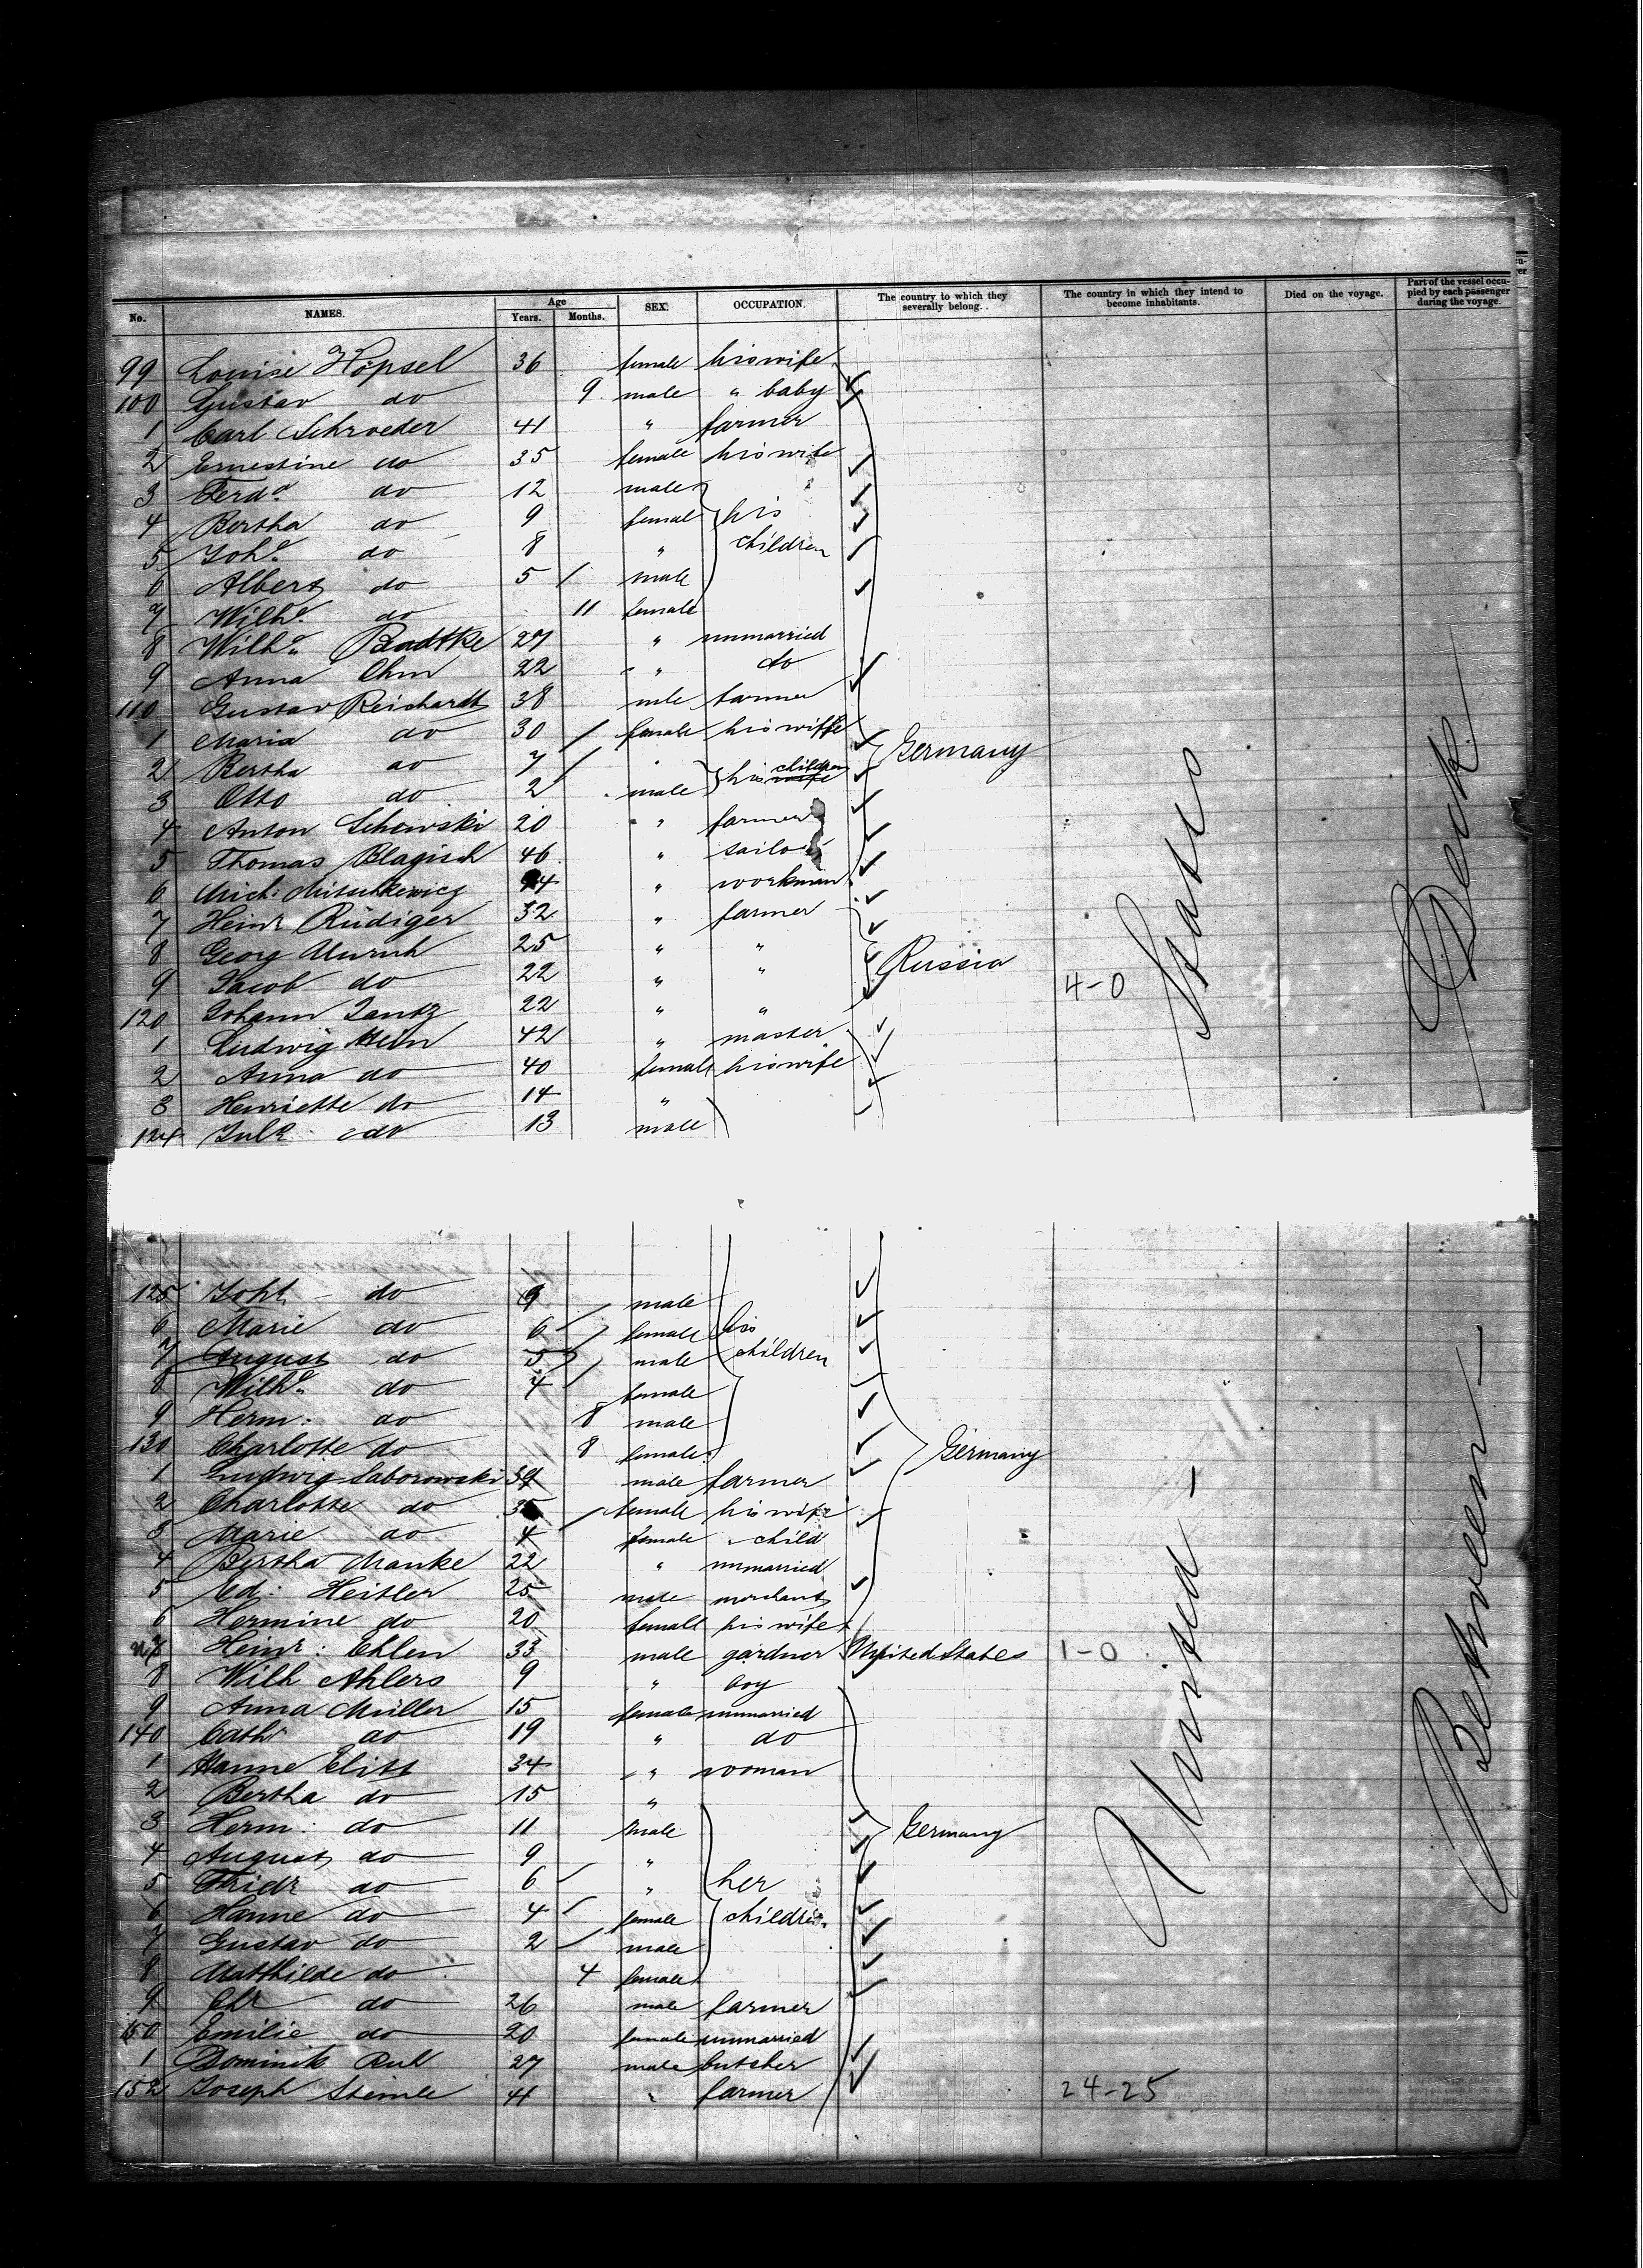 No. NAMES. Age Years. Months. SEX. OCCUPATION. The country to which they severally belong. The country in which they intend to become inhabitants. Died on the voyage. Part of the vessel occupied by each passenger during the voyage.
99 Louise Höpsel 36 female his wife
100 Gustav do 9 male " baby
1 Carl Schroeder 41 " farmer
2 Ernestine do 35 female his wife
3 Ferd. do 12 male
4 Bertha do 9 female his
5 Joh. do 8 " children
6 Albert do 5 male
7 Wilh. do 11 female
8 Wilh. Radtke 27 " unmarried
9 Anna Ohm 22 " do
110 Gustav Reichardt 38 male farmer
1 Maria do 30 female his wiffe
2 Bertha do 7 " Germany
3 Otto do 2 male his children
4 Anton Schewski 20 " farmer
5 Thomas Blagisch 46 " sailor
6 Mich: Mitschkewicz 44 " workman
7 Heinr. Rüdiger 32 " farmer
8 Georg Unruh 25 " "
9 Jacob do 22 " " Russia
120 Johann Jantz 22 " " 4-0
1 Ludwig Hein 42 " master
2 Anna do 40 female his wife
3 Henriette do 14 "
124 Jul. do 13 male
125 Joh. do 9 male
6 Marie do 6 female his
7 August do 5 male children
8 Wilh. do 4 female
9 Herm: do 8 male
130 Charlotte do 8 female Germany
1 Ludwig Saborowski 39 male farmer
2 Charlotte do 35 female his wife
3 Marie do 4 female " child
4 Bertha Manke 22 " unmarried
5 Ed: Heitler 25 male merchant
6 Hermine do 20 female his wife
7 Heinr: Ehlen 33 male gardner United States 1-0
8 Wilh Ahlers 9 " boy
9 Anna Müller 15 female unmarried
140 Cath. do 19 " do
1 Hanne Elitt 34 " woman
2 Bertha do 15 "
3 Herm: do 11 male Germany
4 August do 9 "
5 Friedr do 6 " her
6 Hanne do 4 female children
7 Gustav do 2 male
8 Matthilde do 4 female
9 Chr do 26 male farmer
150 Emilie do 20 female unmarried
1 Dominik Rul 27 male butcher
152 Joseph Steinle 41 " farmer 24-25
United States
Between Deck